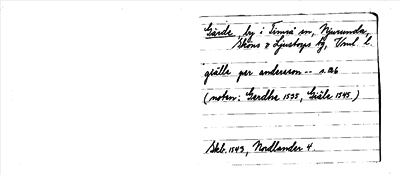 Gärde, by i Timrå sn, Njurunda,
Sköns o Ljustorps tg, Vml l.
giälle per andersson -- s. 126
(noten: Gerdhe 1535, Giäle 1545)
Skb. 1543, Nordlander 4